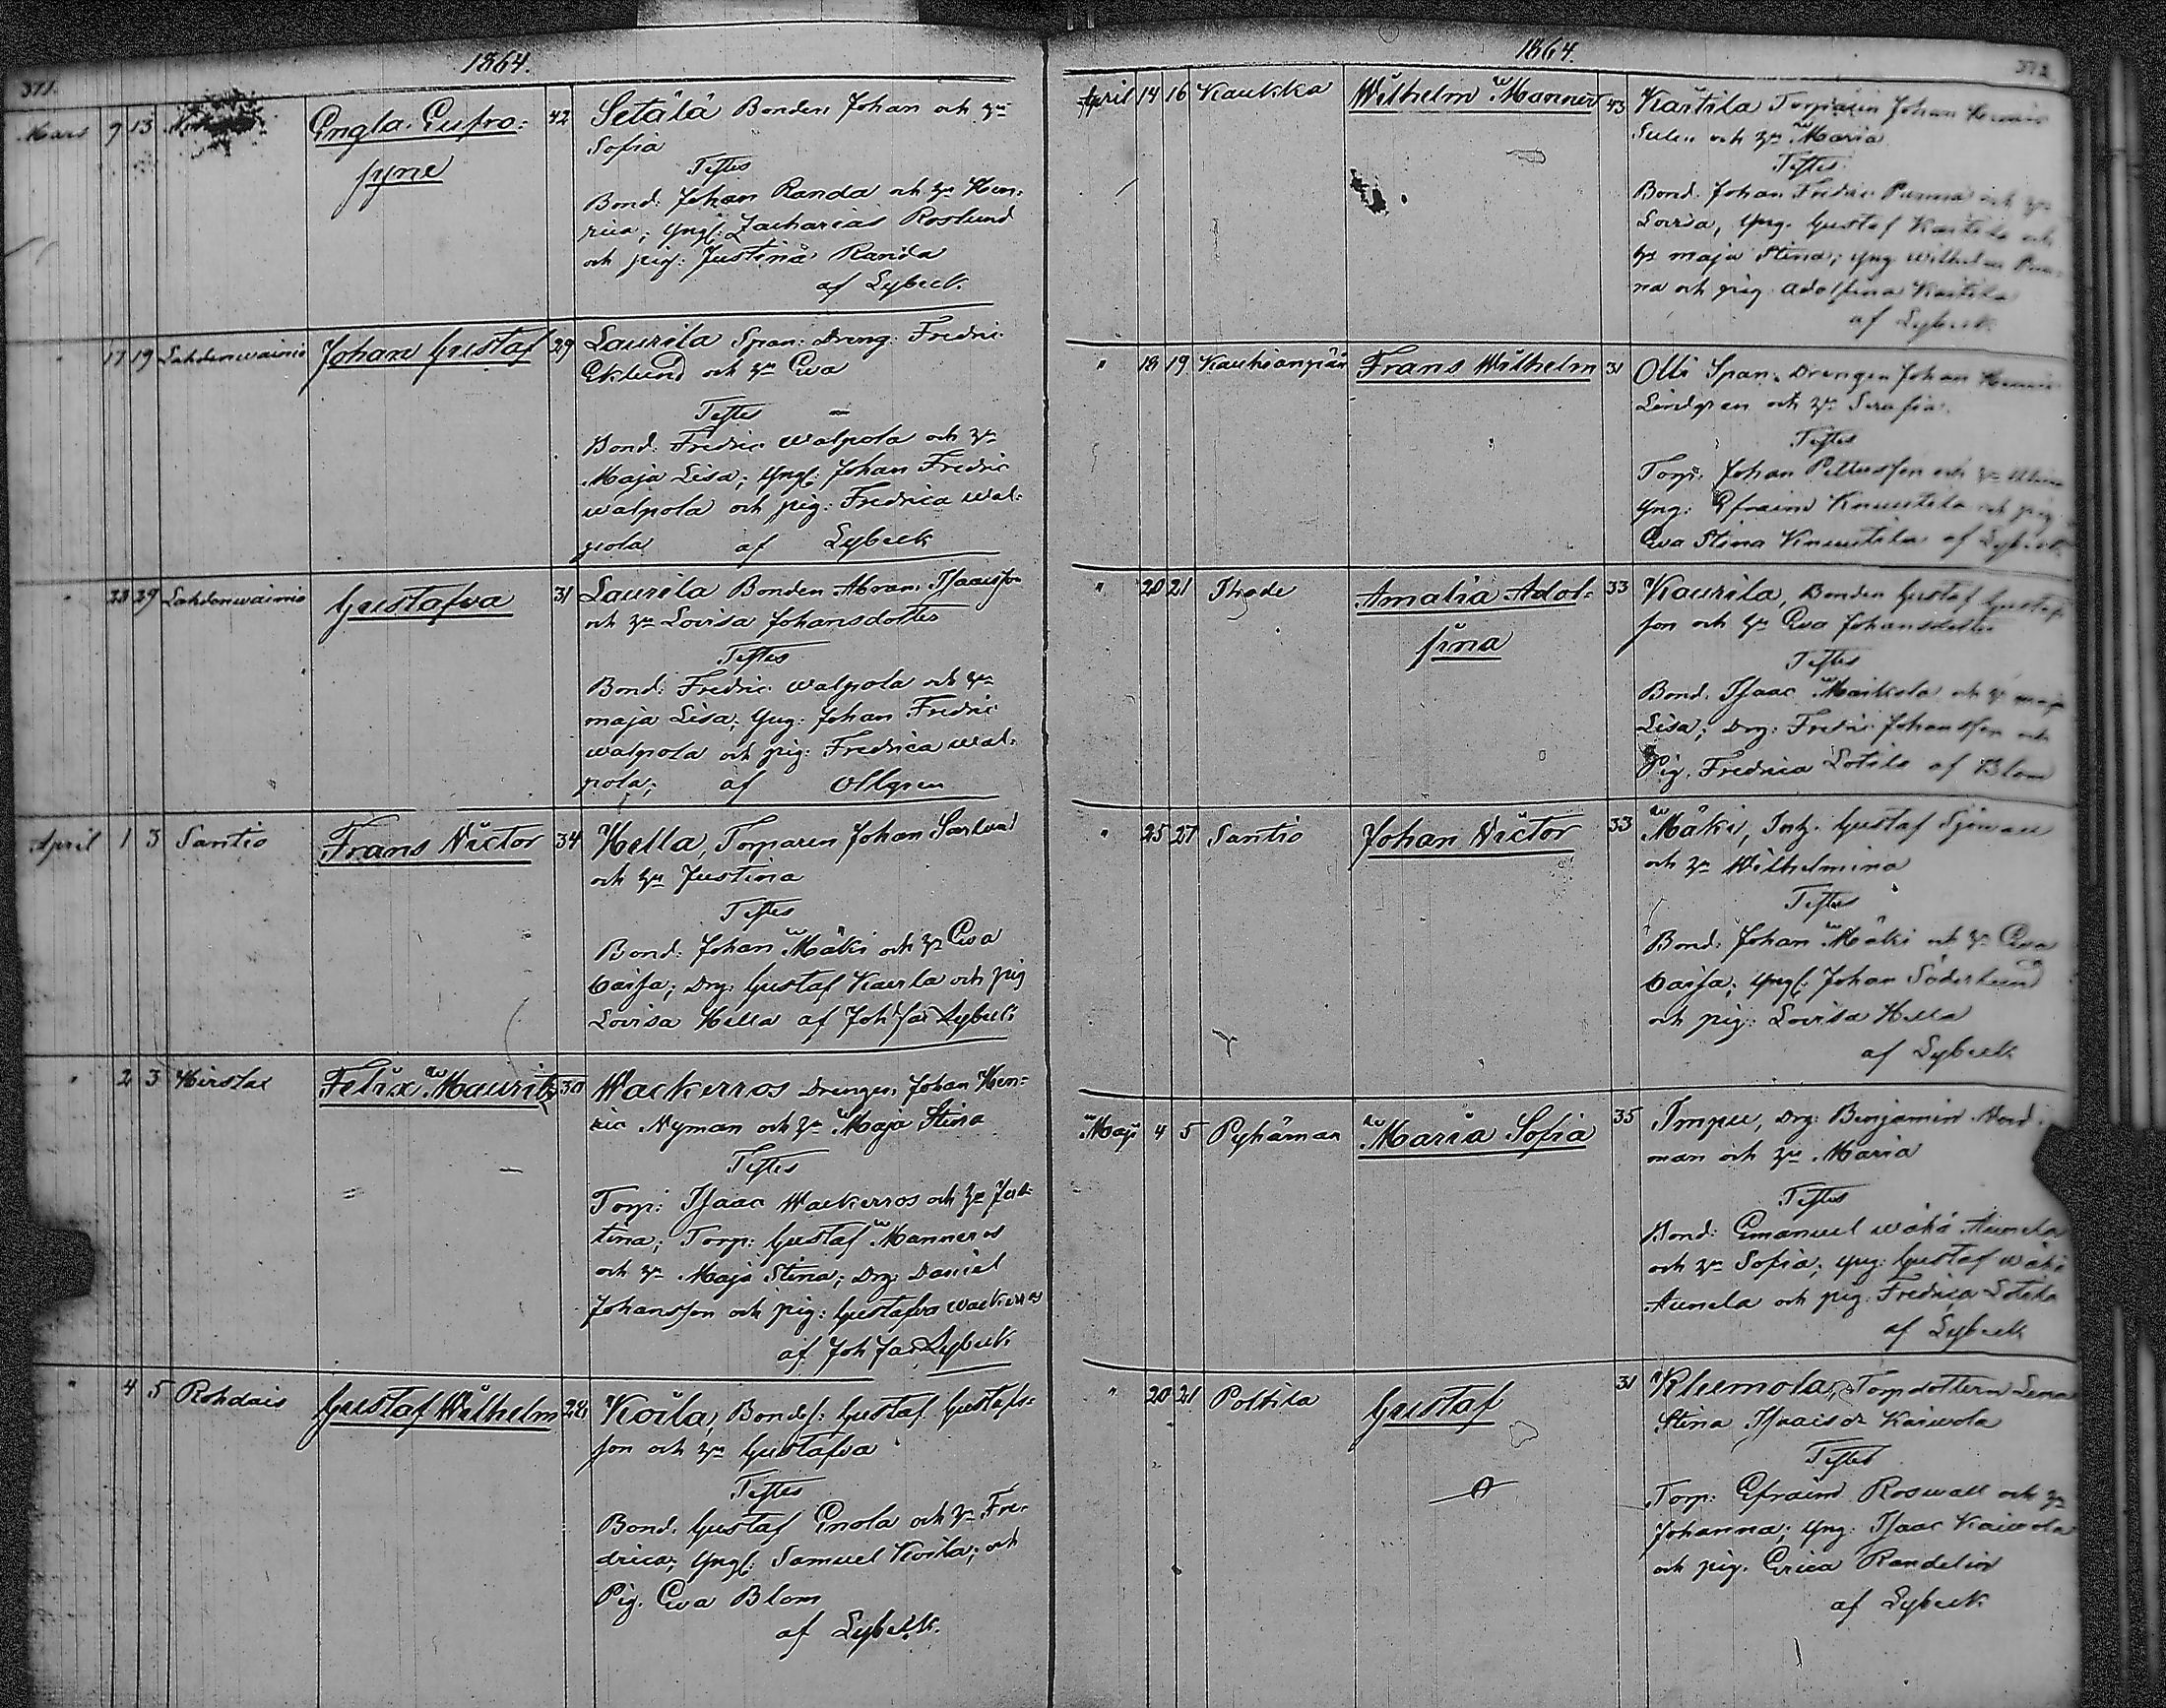 1864.
371.
Mars 9 13 Engla Eufro: 42 Setälä Bonden Johan och hu
syne Sofia
Testes
Bond: Johan Randa och hu Hen:
rica; Yngl: Zacharias Roslund
och pig: Justina Randa
af Lybeck.
" 17 19 Lahdenwainio Johan Gustaf 29 Laurila Span: Dreng: Fredric
Eklund och hu Eva
Testes
Bond: Fredric Walpola och hu
Maja Lisa; Yngl: Johan Fredric
Walpola och pig: Fredrica Wal:
pola af Lybeck
" 28 29 Lahdenwainio Gustafva 31 Laurila Bonden Abram Isaacsson
och hu Lovisa Johansdotter
Testes
Bond: Fredric Walpola och hu
Maja Lisa; Yng: Johan Fredric
Walpola och pig: Fredrica Wal:
pola; af Ollgren
April 1 3 Santio Frans Victor 34 Hella, Torparen Johan
och hu Justina
Testes
Bond: Johan Mäki och hu Eva
Caisa; Drg: Gustaf Kaurla och pig
Lovisa Hella af Joh Jac Lybeck
" 2 3 Hirslax Felix Mauritz 30 Wackerros Drengen Johan Hen:
ric Nyman och hu Maja Stina
Testes
Torp: Isaac Wackerros och hu Jus:
tina; Torp: Gustaf Manneros
och hu Maja Stina; Drg: Daniel
Johansson och pig: Gustafva Wackerros
af Joh Jac Lybeck
" 4 5 Rohdais Gustaf Wilhelm 28 Koila, Bondes: Gustaf Gustafs:
son och hu Gustafva
Testes
Bond. Gustaf Enola och hu Fre:
drica; Yngl: Samuel Koila; och
Pig. Eva Blom
af Lybeck.
1864.
372
April 14 16 Kaukka Wilhelm Manner 43 Kartila Torparen Johan Henric
och hu Maria
Testes
Bond. Johan Fredric Punna och hu
Lovisa, Yng. Gustaf Kartila och
hu Maja Stina; Yng Wilhelm Pun:
na och pig. Adolfina Kartila
af Lybeck
" 18 19 Kaukianpää Frans Wilhelm 31 Olli Span. Drengen Johan Henric
Lindgren och hu Serafia.
Testes
Torp. Johan Pettersson och hu
Yng: Efraim Knuutila och pig
Eva Stina Knuutila af Lybeck
" 20 21 Ihode Amalia Adol: 33 Kaurila, Bonden Gustaf Gustafs
fina son och hu Eva Johansdotter
Testes
Bond. Isaac Maikola och hu Maja
Lisa; Drg: Fredric Johansson och
Pig. Fredrica Sotila af Blom
" 25 27 Santio Johan Victor 33 Mäki, Inh. Gustaf Sjöman
och hu Wilhelmina
Testes
Bond: Johan Mäki och hu Eva
Caisa; Yngl: Johan Söderlund
och pig: Lovisa Hella
af Lybeck
Maji 4 5 Pyhämaa Maria Sofia 35 Impu, Drg: Benjamin Nord:
man och hu Maria
Testes
Bond: Emanuel Wähä Aunela
och hu Sofia; Yng: Gustaf Wähä
Aunela och pig. Fredrica Sotila
af Lybeck
" 20 21 Polttila Gustaf 31 Klemola, Torpdottern Lena
Stina Isaacsdr Kaiwola
Testes
Torp: Efraim Roswall och hu
Johanna; Yng: Isaac Kaiwola
och pig. Erica Randelin
af Lybeck